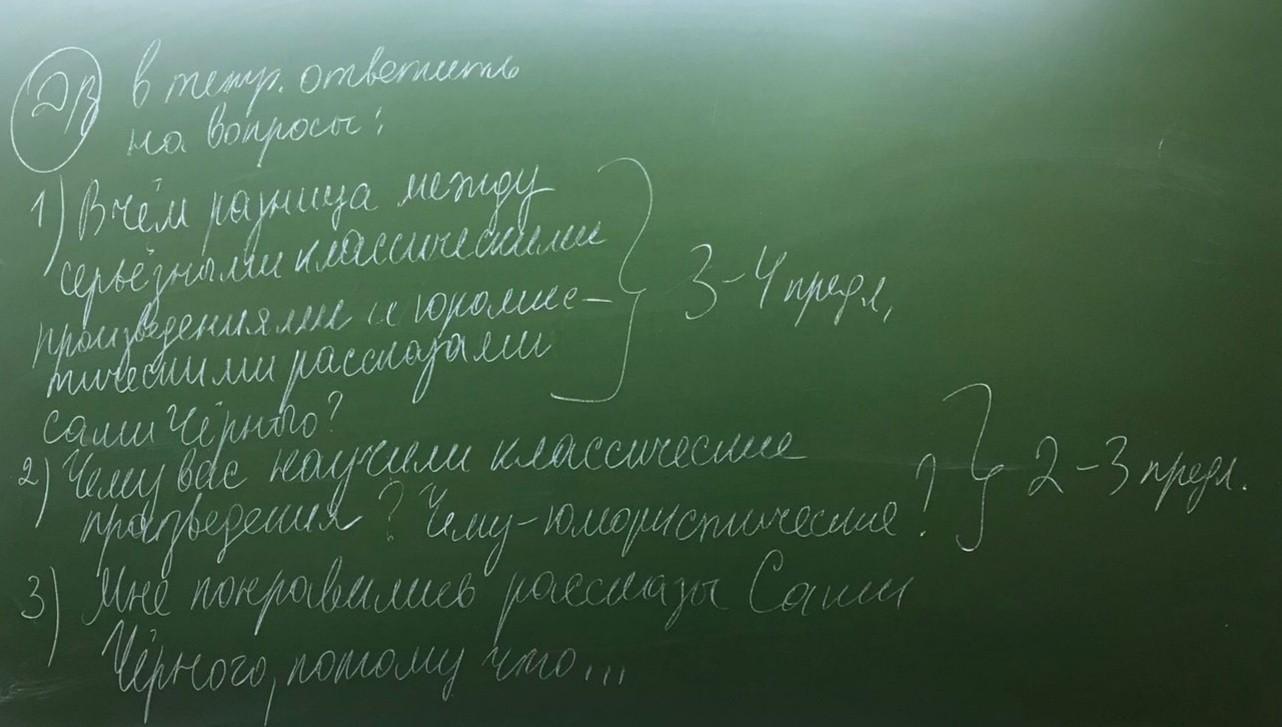 Д/З в тетр. ответить
на вопросы:
1) В чём разница между
серьёзными классическими
произведениями и юромис-
тическими рассказами
саши Чёрного?
3-4 предл,
2) Чему вас научили классические
произведения? Чему-юмористические?
2-3 предл.
3) Мне понравились рассказы Саши
Чёрного, потому что...